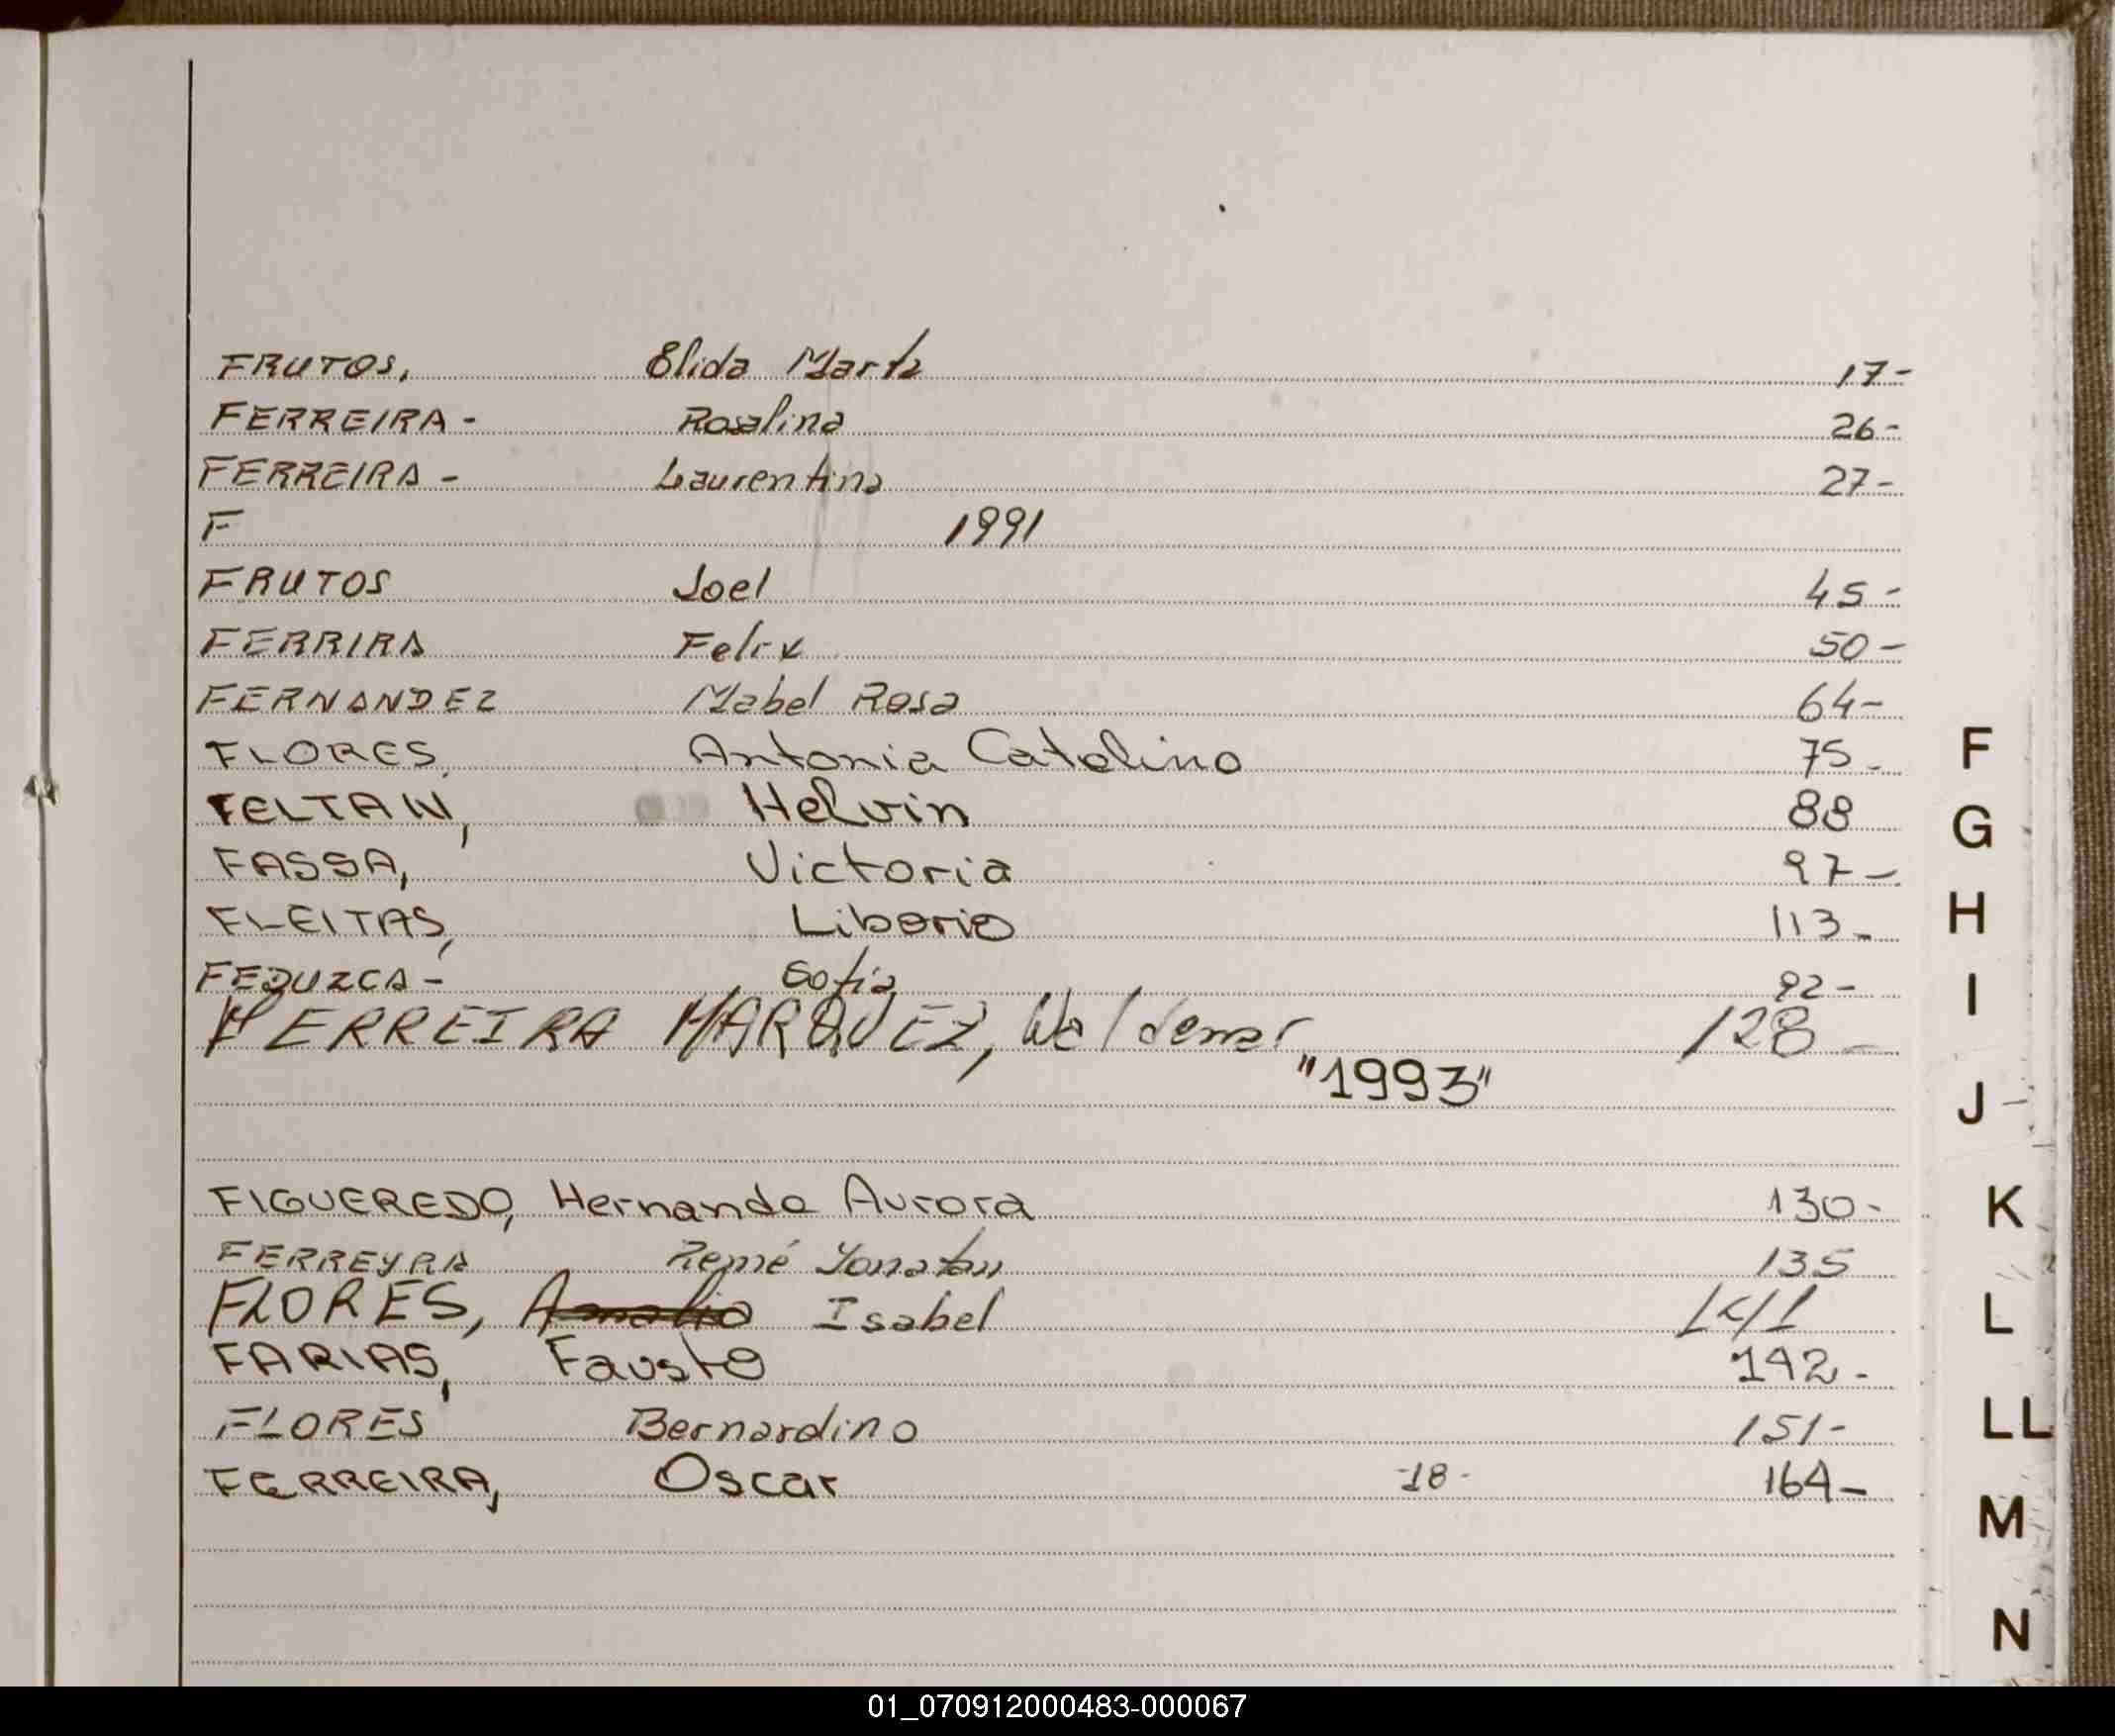 FRUTOS, Elida Marta 17-
FERREIRA- Rosalina 26-
FERREIRA- Laurentina 27-
F 1991
FRUTOS Joel 45-
FERRIRA Felix 50-
FERNANDEZ Mabel Rosa 64-
FLORES, Antonia Catalino 75-
FELTAN, Helvin 88
FASSA, Victoria 97-
FLEITAS, Liborio 113-
FEDUZCA- Sofia 92-
FERREIRA MARQUEZ, Waldemar 128-
"1993"
FIGUEREDO, Hernando Aurora 130-
FERREYRA René Yonatan 135
FLORES, Isabel 141
FARIAS, Fausto 142-
FLORES Bernardino 151-
FERREIRA, Oscar -18- 164-
F
G
H
I
J
K
L
LL
M
N
01_070912000483-000067